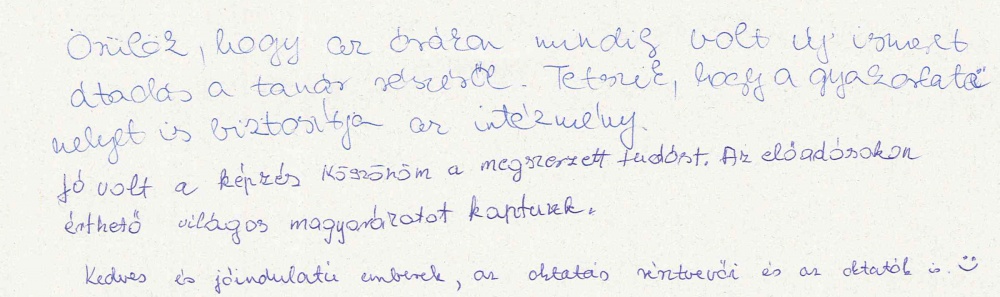 Örülök, hogy az órákon mindig volt új ismeret
átadás a tanár részéről. Tetszik, hogy a gyakorlati
helyet is biztosítja az intézmény.
Jó volt a képzés Köszönöm a megszerzett tudást. Az előadásokon
érthető világos magyarázatot kaptunk.
Kedves és jóindulatú emberek, az oktatás résztvevői és az oktatók is. :)